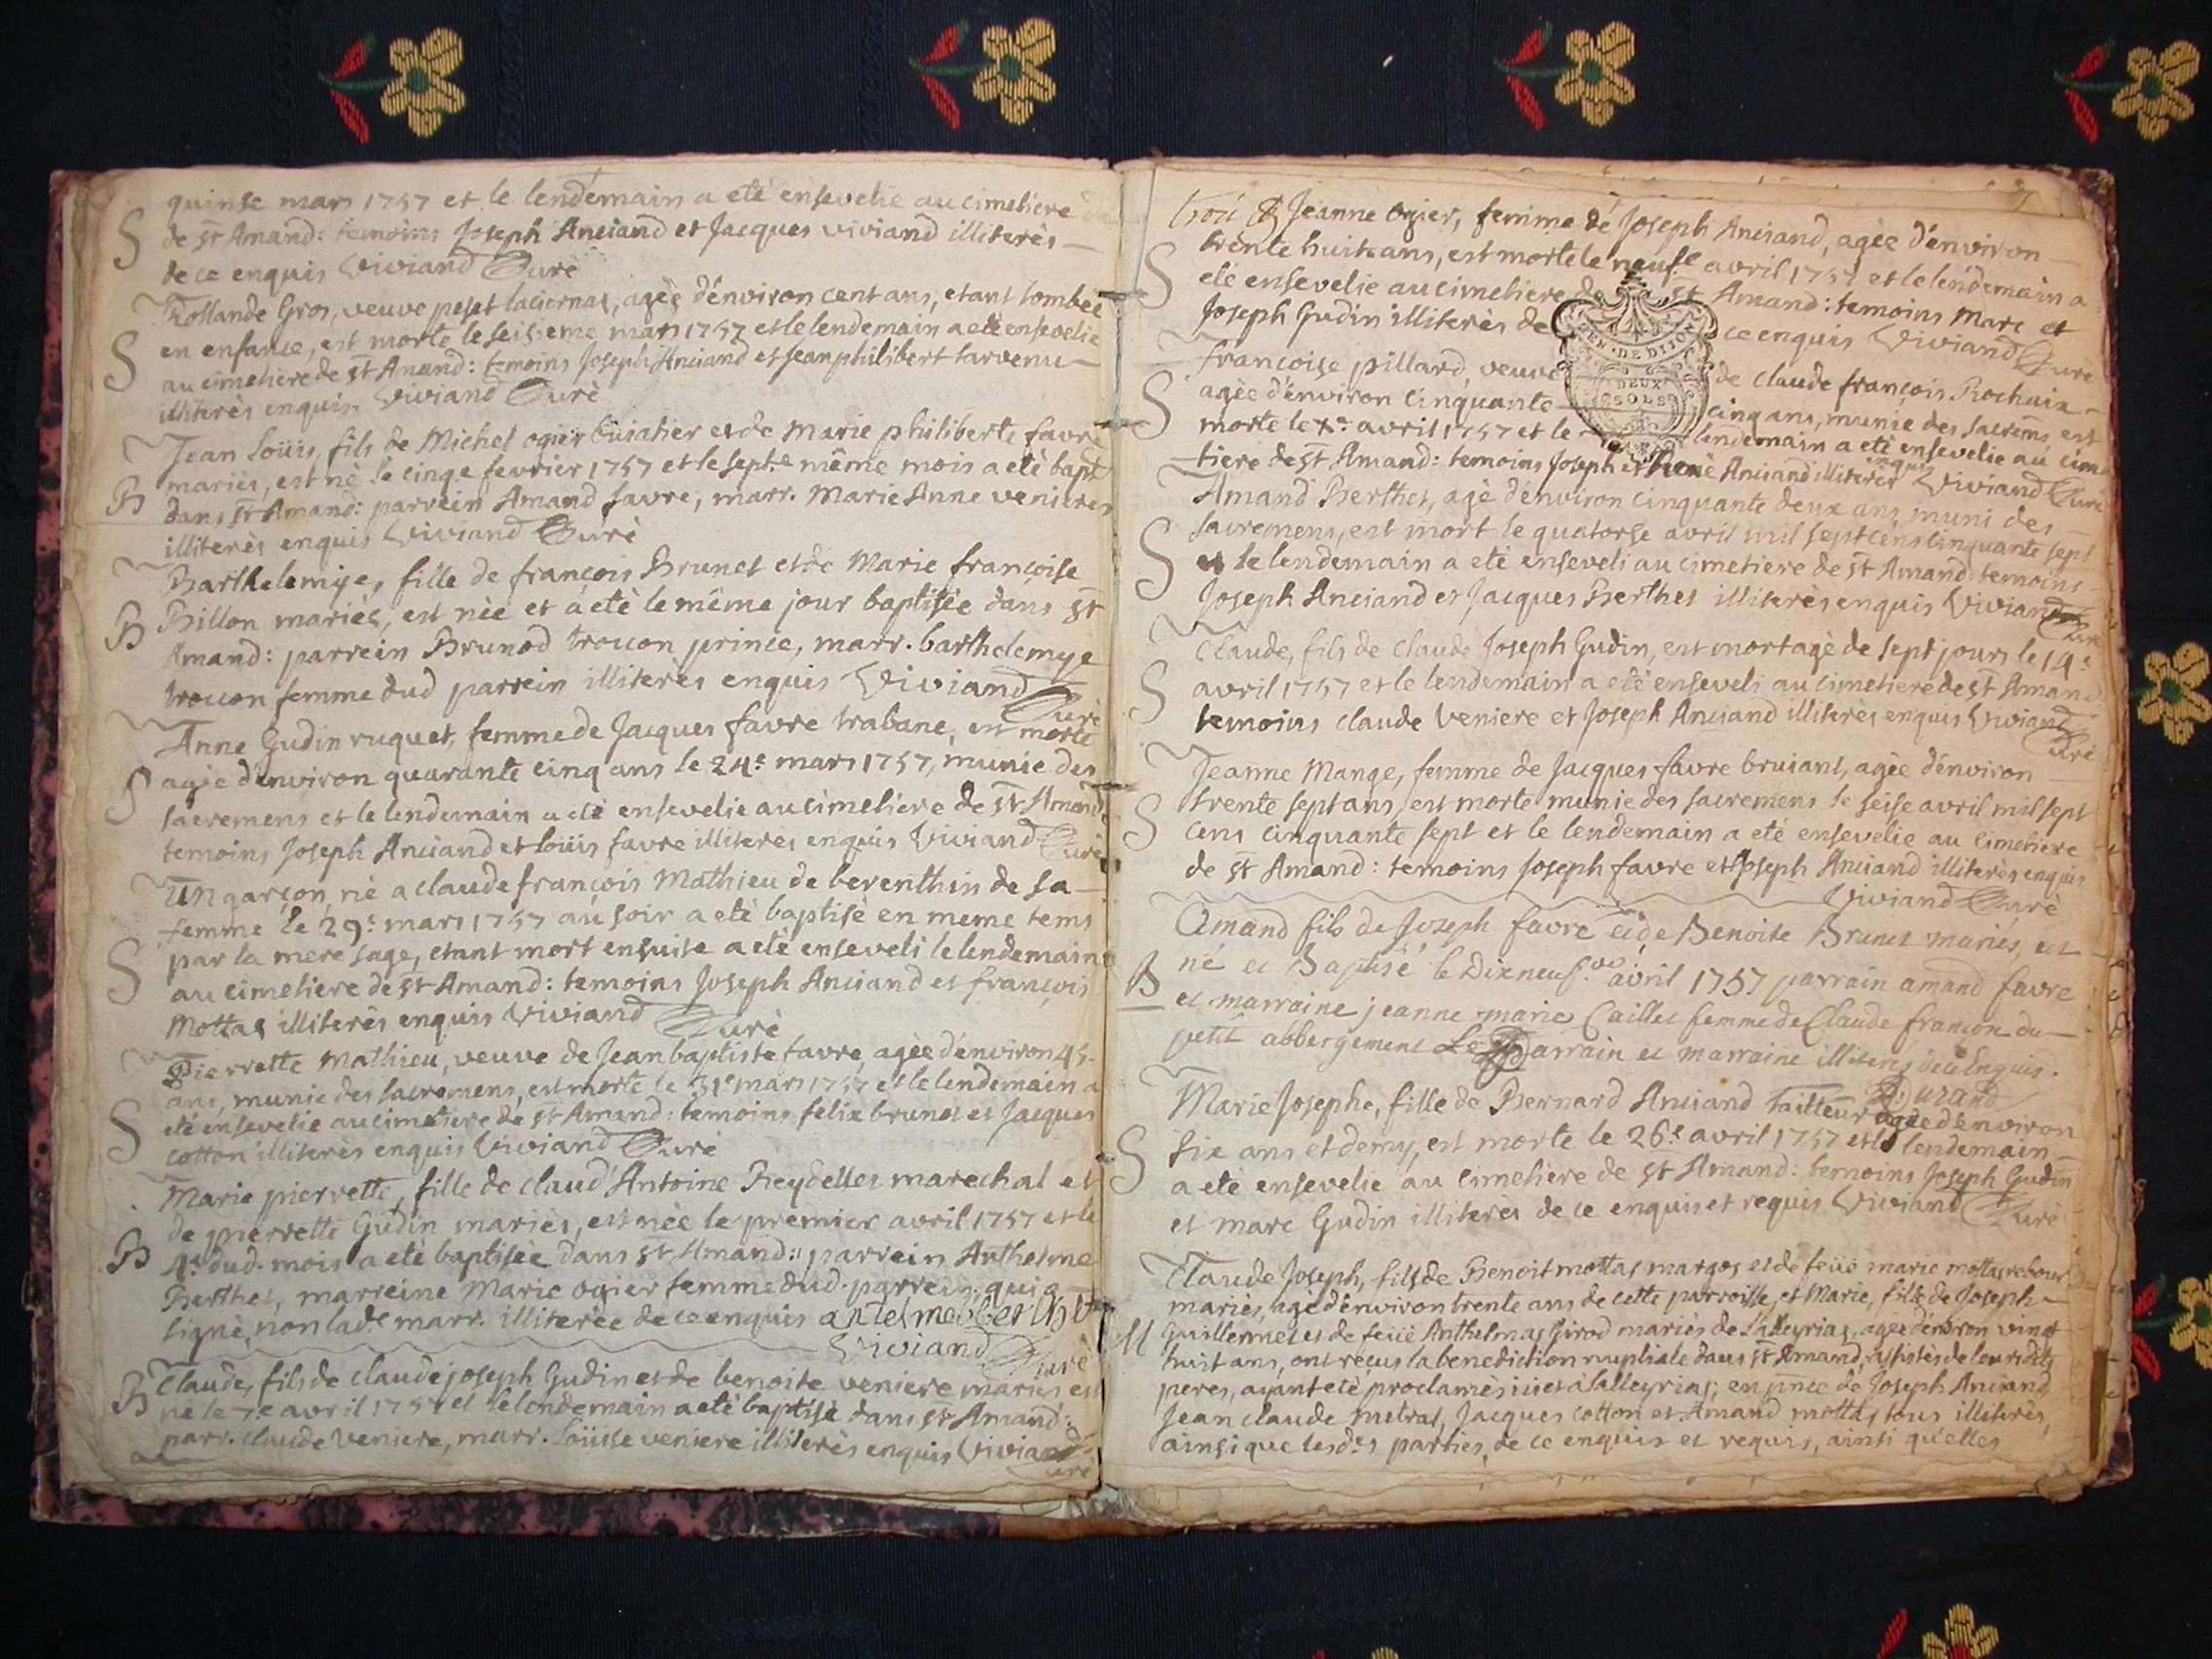 quinse mars 1757 et le lendemain a eté ensevelie au cimetiere
S de st Amand: temoins Joseph Anciand et Jacques viviand illiterès
de ce enquis Viviand Curè
Rollande Gros, veuve peset laciernas, agèe d'environ cent ans, etant tombèe
S en enfance, est morte le seisieme mars 1757 et le lendemain a etè ensevelie
au cimetiere de st Amand: temoins Joseph Anciand et Jean philibert
illiterès enquis Viviand Curè
Jean Loüis, fils de Michel ogier et de Marie philiberte favre
B mariès, est nè le cinq.e fevrier 1757 et le sept.e même mois a etè bapt
dans st Amand: parrein Amand favre, marr. Marie Anne venieres
illiterès enquis Viviand Curè
Barthelemye, fille de françois Brunet et de Marie françoise
B Billon mariès, est nèe et a etè le même jour baptisèe dans st
Amand: parrein Brunod troccon prince, marr. barthelemye
troccon femme dud parrein illiterès enquis Viviand
Curè
Anne Gudin ruquet, femme de Jacques favre trabane, est morte
S agèe d'environ quarante cinq ans le 24.e mars 1757, munie des
sacremens et le lendemain a etè ensevelie au cimetiere de st Amand
temoins Joseph Anciand et Loüis favre illiterès enquis Viviand Curè
Un garçon, nè a claude françois Mathieu de berenthin de sa
femme le 29.e mars 1757 au soir a etè baptisè en meme tems
S par la mere sage, etant mort ensuite a etè enseveli le lendemain
au cimetiere de st Amand: temoins Joseph Anciand et françois
Mottas illiterès enquis Viviand Curè
Pierrette Mathieu, veuve de Jean baptiste favre, agèe d'environ 45
ans, munie des sacremens, est morte le 31.e mars 1757 et le lendemain a
S etè ensevelie au cimetiere de st Amand: temoins felix brunet et Jacques
cotton illiterès enquis Viviand Curè
Marie pierrette, fille de claud' Antoine Reydellet marechal et
de pierrette Gudin mariès, est nèe le premier avril 1757 et le
B 4.e dud. mois a etè baptisèe dans st Amand: parrein Anthelme
Berthet, marreine Marie ogier femme dud. parrein, qui a
signè, non lad.e marr. illiterèe de ce enquis antelme berthet
Viviand Curè
B Claude, fils de claude joseph Gudin et de benoite veniere mariès est
nè le 7.e avril 1757 et le lendemain a etè baptisè dans st Amand:
parr. claude Veniere, marr. Loüise veniere illiterès enquis Viviand
Curè
Jeanne Ogier, femme de Joseph Anciand, agèe d'environ
S trente huit ans, est morte le neuf.e avril 1757 et le lendemain a
etè ensevelie au cimetiere de st Amand: temoins Marc et
Joseph Gudin illiterès de ce enquis Viviand Curè
GEN. DE DIJON
DEUX
SOLS
francoise pillard, veuve de claude françois Rochaix
S agèe d'environ cinquante cinq ans, munie des sacrems, est
morte le x.e avril 1757 et le lendemain a etè ensevelie au cime
tiere de st Amand: temoins Joseph et Anciand illiterès enquis Viviand Curè
Amand Berthet, agè d'environ cinquante deux ans, muni des
S sacremens, est mort le quatorse avril mil sept cens cinquante sept
et le lendemain a etè enseveli au cimetiere de st Amand: temoins
Joseph Anciand et Jacques Berthet illiterès enquis Viviand
Curè
Claude, fils de claude Joseph Gudin, est mort agè de sept jours le 14.e
S avril 1757 et le lendemain a etè enseveli au cimetiere de st Amand
temoins claude veniere et Joseph Anciand illiterès enquis Viviand
Curè
Jeanne Mange, femme de Jacques favre bruiant, agèe d'environ
S trente sept ans, est morte munie des sacremens le seise avril mil sept
cens cinquante sept et le lendemain a etè ensevelie au cimetiere
de st Amand: temoins Joseph favre et Joseph Anciand illiterès enquis
Viviand Curè
Amand fils de Joseph favre et de Benoite Brunet mariés, est
B né et Baptisé le Dix neuf.e avril 1757 parrain amand favre
et marraine jeanne marie Caillet femme de Claude francon du
petit abbergement Le Parrain et marraine illiteres de ce Enquis.
Durand
Marie Josephe, fille de Bernard Anciand Tailleur agèe d'environ
S six ans et demy, est morte le 26.e avril 1757 et le lendemain
a etè ensevelie au cimetiere de st Amand: temoins Joseph Gudin
et marc Gudin illiterès de ce enquis et requis Viviand Curè
Claude Joseph, fils de Benoit mottas margos et de feüe marie mottas rebour
mariès, agè d'environ trente ans de cette parroisse, et Marie, fille de Joseph
M Guillermet et de feüe Anthelmas Girod mariès de Lalleyriat, agèe d'environ vingt
huit ans, ont reçus la benediction nuptiale dans st Amand, assistès de leursdits
peres, ayant etè proclamès ici et à Lalleyriat; en pnce de Joseph Anciand
Jean claude metrat, Jacques cotton et Amand mottas tous illiterès,
ainsi que lesd.es parties, de ce enquis et requis, ainsi qu'elles